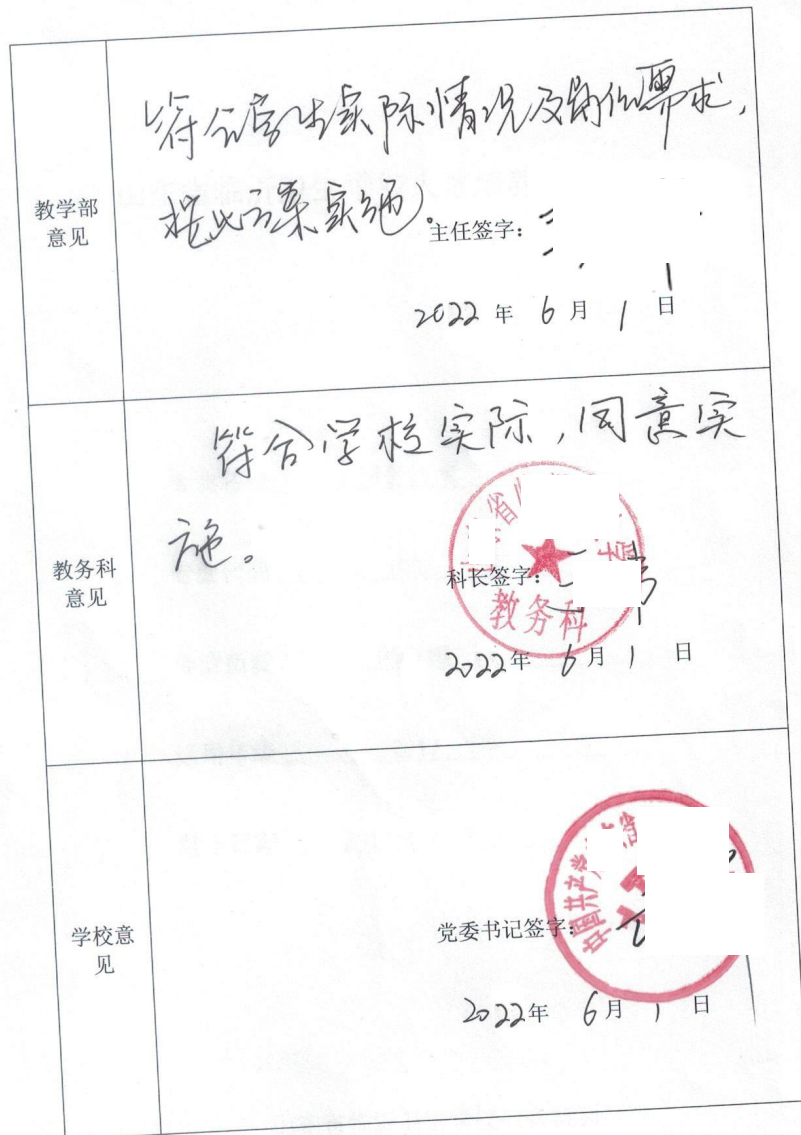 教学部
意见
符合学生实际情况及岗位需求,
按此方案实施。
主任签字:
2022 年 6 月 1 日
教务科
意见
符合学校实际,同意实
施。
省
科长签字:
教务科
2022年 6月 1 日
学校意
见
中国共产党
党委书记签字:
2022年 6月 1 日